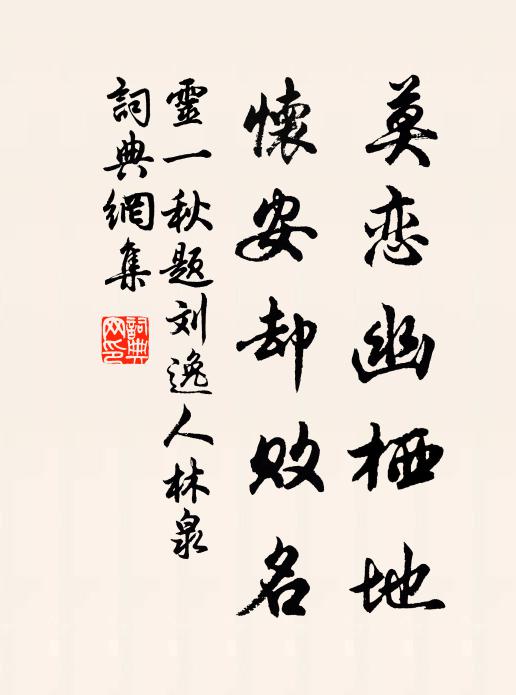 莫恋幽栖地
懷安却败名
靈一秋题刘逸人林泉
詞典網集
詞典网印